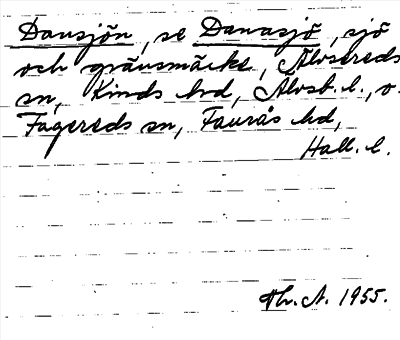 Dansjön, se Danasjö, sjö
och gränsmärke, Älvsereds
sn, Kinds hd, Älvsb. l., o.
Fagereds sn, Faurås hd,
Hall. l.
Th. A. 1955.